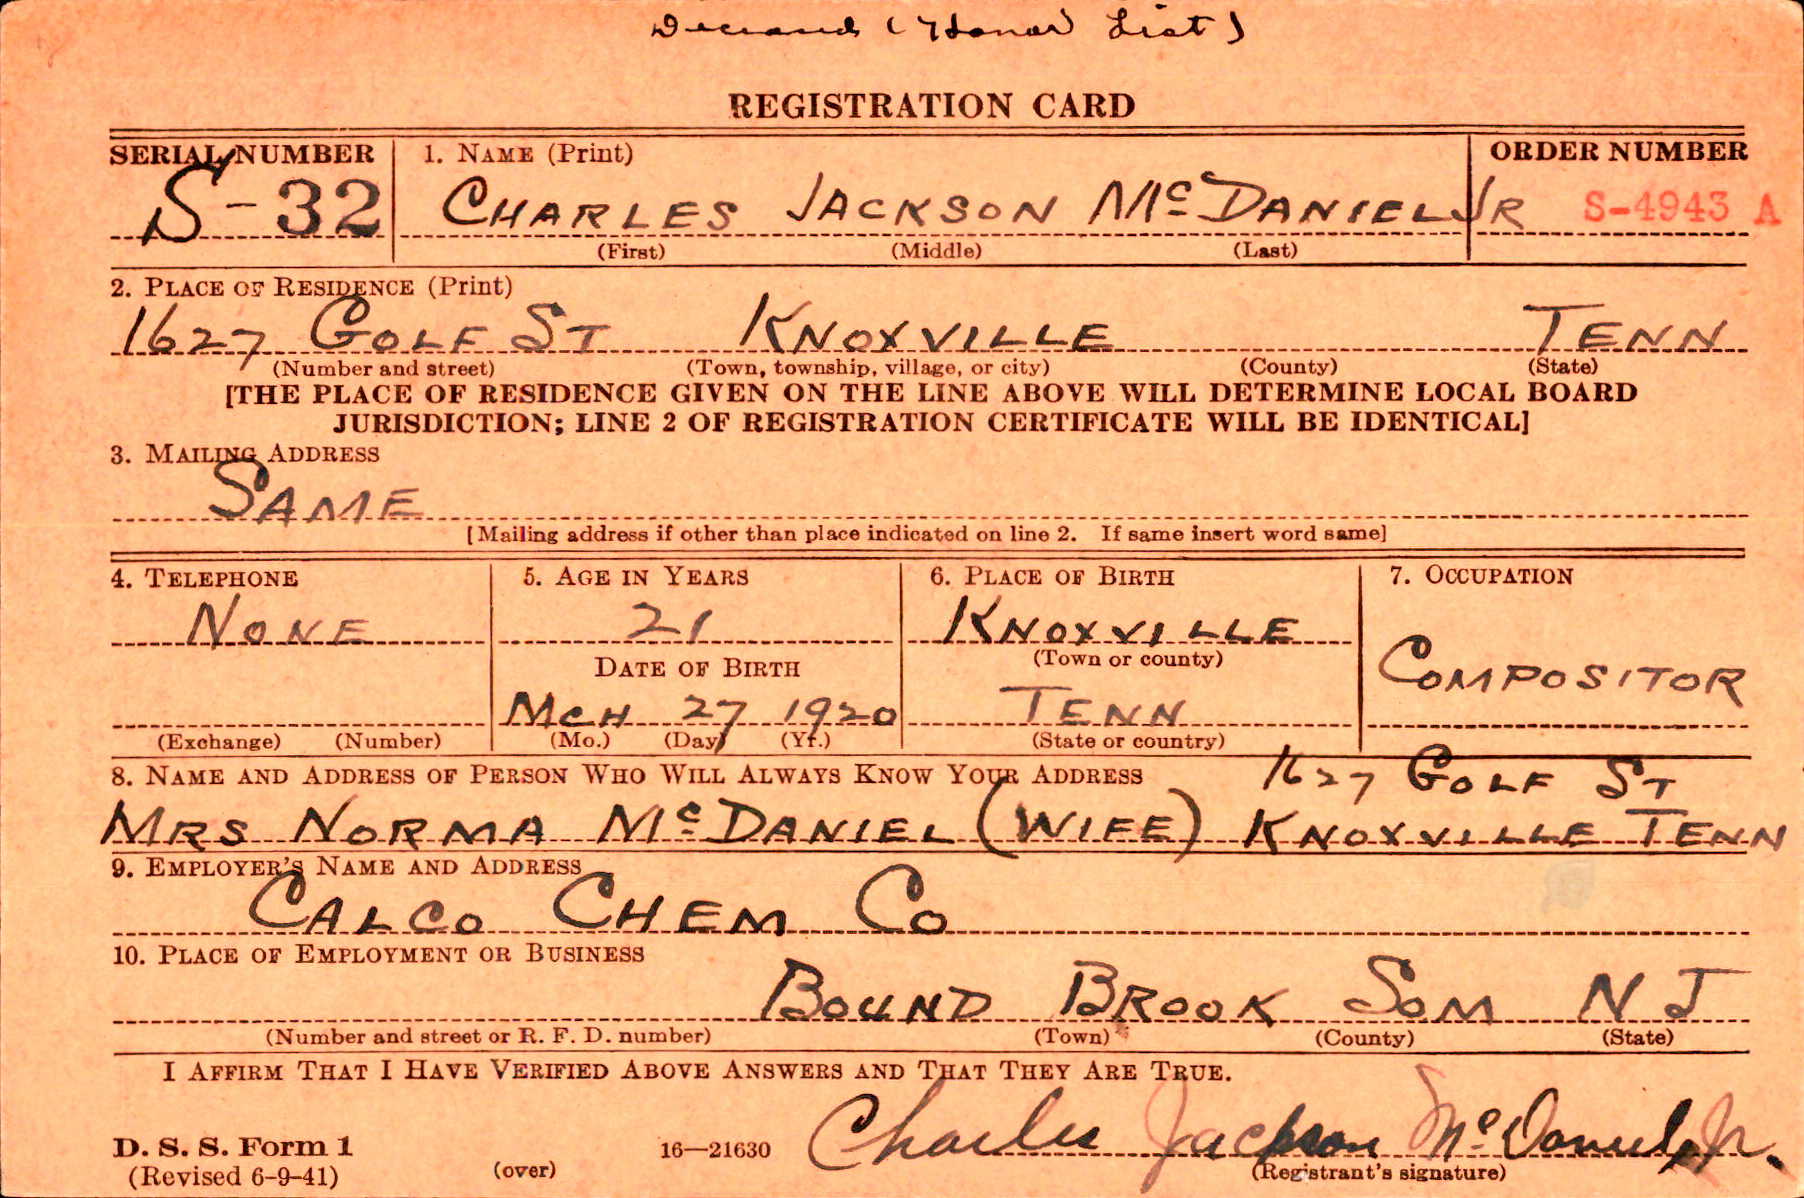 Deceased (Honor List)
REGISTRATION CARD
SERIAL NUMBER 1. NAME (Print) ORDER NUMBER
S-32 CHARLES JACKSON McDANIEL JR S-4943 A
(First) (Middle) (Last)
2. PLACE OF RESIDENCE (Print)
1627 GOLF ST KNOXVILLE TENN
(Number and street) (Town, township, village, or city) (County) (State)
[THE PLACE OF RESIDENCE GIVEN ON THE LINE ABOVE WILL DETERMINE LOCAL BOARD
JURISDICTION; LINE 2 OF REGISTRATION CERTIFICATE WILL BE IDENTICAL]
3. MAILING ADDRESS
SAME
[Mailing address if other than place indicated on line 2. If same insert word same]
4. TELEPHONE 5. AGE IN YEARS 6. PLACE OF BIRTH 7. OCCUPATION
NONE 21 KNOXVILLE
(Town or county)
DATE OF BIRTH COMPOSITOR
MCH 27 1920 TENN
(Exchange) (Number) (Mo.) (Day) (Yr.) (State or country)
8. NAME AND ADDRESS OF PERSON WHO WILL ALWAYS KNOW YOUR ADDRESS 1627 GOLF ST
MRS NORMA McDANIEL (WIFE) KNOXVILLE TENN
9. EMPLOYER'S NAME AND ADDRESS
CALCO CHEM CO
10. PLACE OF EMPLOYMENT OR BUSINESS
BOUND BROOK SOM N J
(Number and street or R. F. D. number) (Town) (County) (State)
I AFFIRM THAT I HAVE VERIFIED ABOVE ANSWERS AND THAT THEY ARE TRUE.
Charles Jackson McDaniel Jr.
D. S. S. Form 1 16—21630
(Revised 6-9-41) (over) (Registrant's signature)